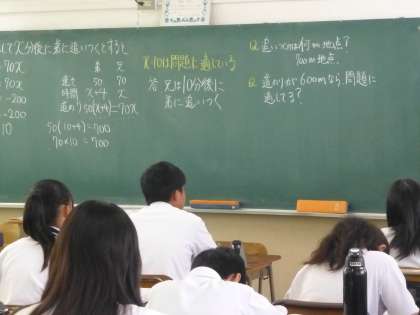 して x分後に弟に追いつくとすると
70x
70x
-200
-200
10
弟 兄
速さ 50 70
時間 x+4 x
道のり 50(x+4)=70x
50(10+4)=700
70×10=700
x=10は問題に適している
答 兄は10分後に
弟に追いつく
Q 追いつくのは何m地点?
700m地点.
Q 道のりが600mなら,問題に
適してる?